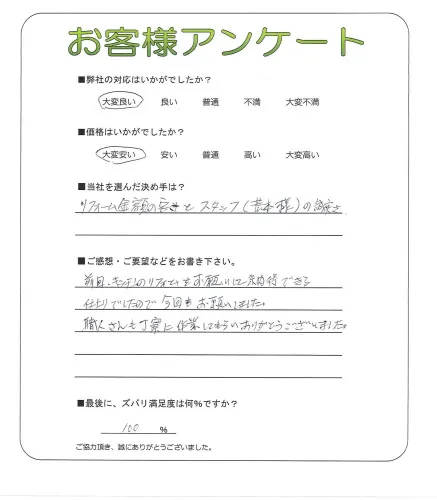 お客様アンケート
■弊社の対応はいかがでしたか?
大変良い 良い 普通 不満 大変不満
■価格はいかがでしたか?
大変安い 安い 普通 高い 大変高い
■当社を選んだ決め手は?
リフォーム金額の安さとスタッフ( 様)の
■ご感想・ご要望などをお書き下さい。
前回、キッチンのリフォームをお願いして納得できる
仕上りでしたので今回もお願いしました。
職人さんも丁寧に作業してもらいありがとうございました。
■最後に、ズバリ満足度は何%ですか?
100 %
ご協力頂き、誠にありがとうございました。